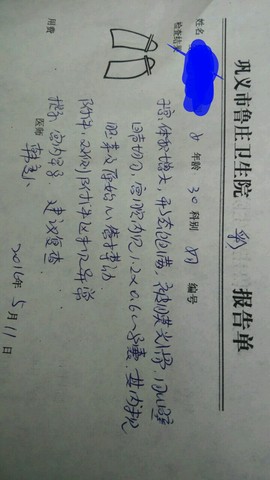 巩义市鲁庄卫生院 彩 报告单
姓名 女 年龄 30 科别 妇 编号
检查结果
子宫：体积增大，形态饱满，被膜光滑，肌壁
回声均匀，宫腔内见1.2×0.6cm孕囊，其内未见
胚芽及原始心管搏动
附件：双侧附件未见异常
提示：宫内早孕 建议复查
用费 医师 韩
2016年5月11日